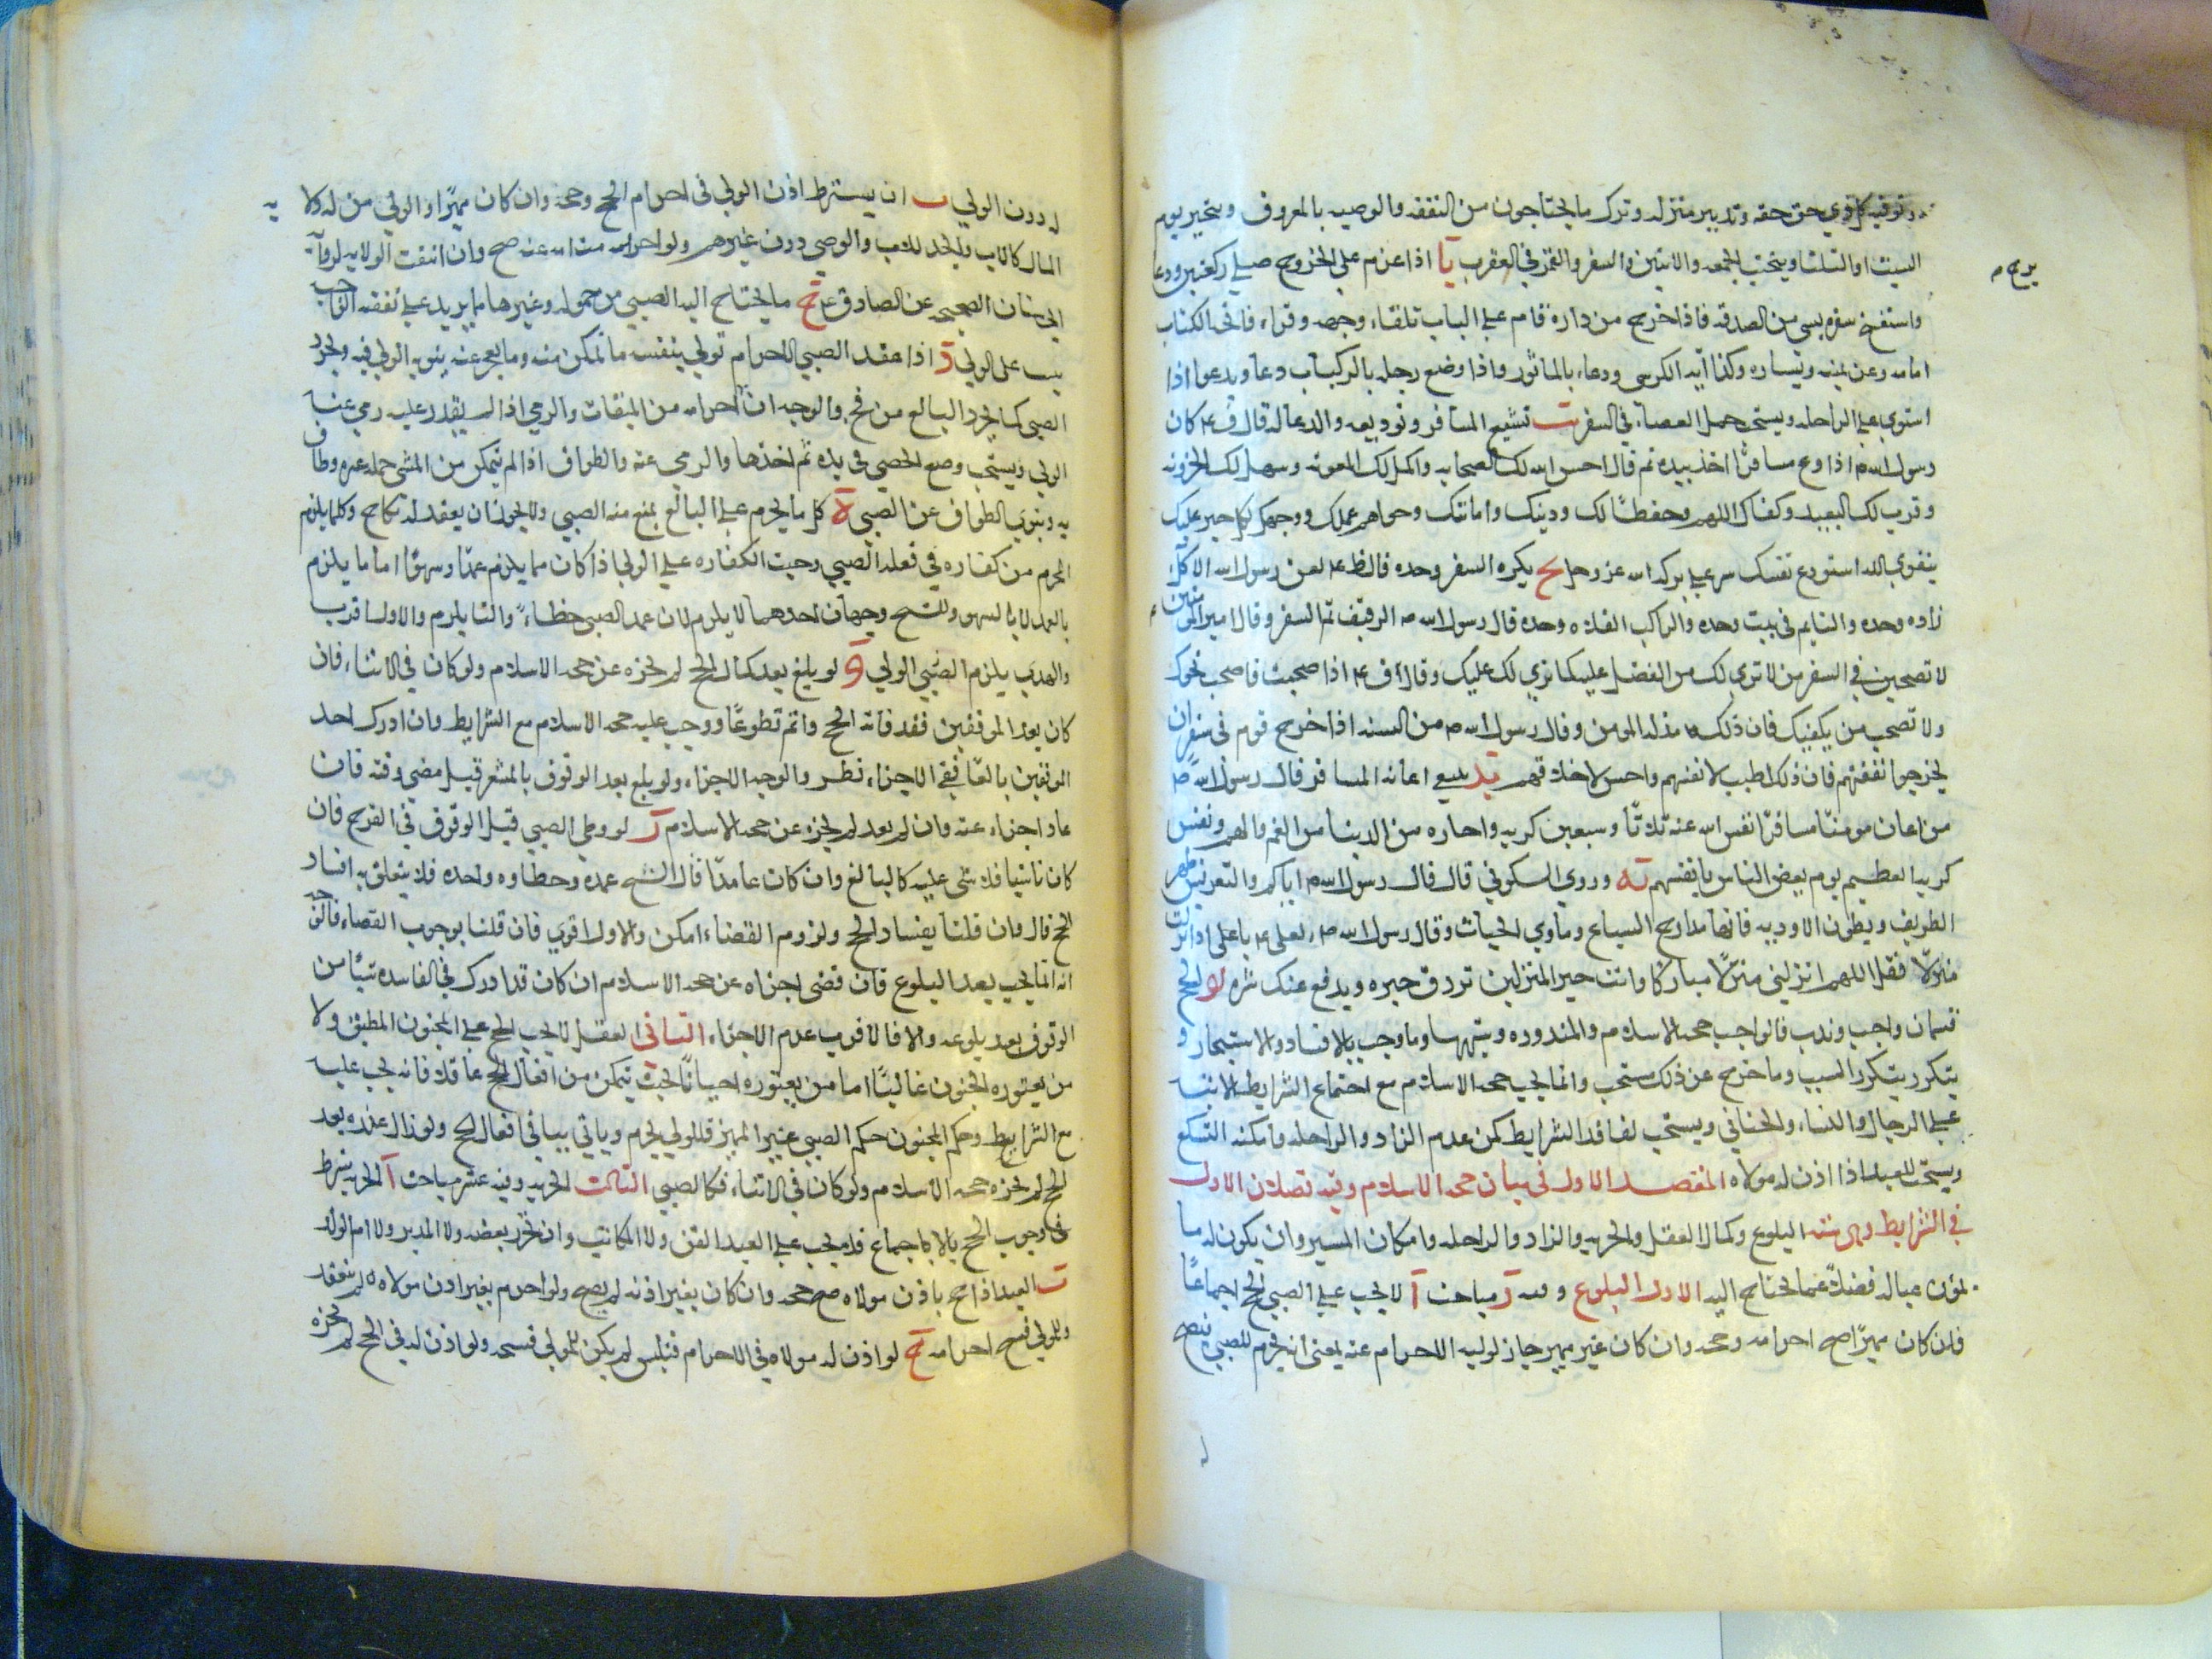 وتوفيه كل ذي حق حقه وتدبير منزله وترك ما يحتاجون من النفقه والوصيه بالمعروف ويتخير يوم
السبت او الثلثا ويجتنب الجمعه والاثنين والسفر والقمر في العقرب يا اذا عزم على الخروج صلى ركعتين ودعا
برج م
واستفتح سفره بشي من الصدقه فاذا خرج من داره قام على الباب تلقاء وجهه وقراء فاتحه الكتاب
امامه وعن يمينه ويساره وكذا آيه الكرسي ودعاء بالماثور واذا وضع رجله بالركاب دعا ويدعوا اذا
استوى على الراحله ويستحب حمل العصاء في السفر تشييع المسافر وتوديعه والدعا له قال ق ع كان
رسول الله ص اذا ودع مسافرًا اخذ بيده ثم قال احسن الله لك الصحابه واكمل لك المعونه وسهل لك الحزونه
وقرب لك البعيد وكفاك المهم وحفظ لك دينك وامانتك وخواتيم عملك ووجهك لكل خير عليك
بتقوى الله استودع نفسك سر على بركه الله عز وجل يج يكره السفر وحده قال ظ ع لعن رسول الله الاكل
زاده وحده والنايم في بيت وحده والراكب الفلاه وحده قال رسول الله ص الرفيق ثم السفر وقال امير المومنين ع
لا تصحبن في السفر من لا ترى لك من الفضل عليك كما ترى لك عليك وقال ق ع اذا صحبت فاصحب نحوك
ولا تصحب من يكفيك فان ذلك مذله المومن وقال رسول الله ص من السنه اذا خرج قوم في سفر ان
يخرجوا نفقتهم فان ذلك اطيب لانفسهم واحسن لاخلاقهم يد ينبغي اعانه المسافر قال رسول الله ص
من اعان مومنًا مسافرًا نفس الله عنه ثلاثًا وسبعين كربه واجاره من الدنيا من الغم والهم ونفس
كربه العظيم يوم يعض الناس بانفسهم يه وروي السكوني قال قال رسول الله ص اياكم والتعريس على ظهر
الطريق وبطون الاوديه فانها مدارج السباع وماوى الحيات وقال رسول الله ص لعلي ع يا علي اذا نزلت
منزلًا فقل اللهم انزلني منزلًا مباركًا وانت خير المنزلين ترزق خيره ويدفع عنك شره يو الحج
قسمان واجب وندب فالواجب حجه الاسلام والمنذوره وشبهها وما وجب بالافساد والاستيجار و
يتكرر بتكرر السبب وما خرج عن ذلك مستحب وانما يجب حجه الاسلام مع اجتماع الشرايط الاتيه
على الرجال والنساء والخناثي ويستحب لفاقد الشرايط كمن عدم الزاد والراحله وامكنه التسكع
ويستحب للعبد اذا اذن له مولاه المقصد الاول في بيان حجه الاسلام وفيه فصلان الاول
في الشرايط وهي سته البلوغ وكمال العقل والحريه والزاد والراحله وامكان المسير وان يكون له ما
يمون عياله فضلًا عما يحتاج اليه الاول البلوغ وفيه ز مباحث آ لا يجب على الصبي الحج اجماعًا
فلن كان مميزًا صح احرامه وحجه وان كان غير مميز جاز لوليه الاحرام عنه يعني انه يحرم للصبي فيصح
له دون الولي ب ان يشترط اذن الولي في احرام الحج وحجه وان كان مميزًا والولي من له ولايه
المال كالاب والجد للاب والوصي دون غيرهم ولو احرمت امه عنه صح وان انتفت الولايه لروايه
ابن سنان الصحيحه عن الصادق ع ج ما يحتاج اليه الصبي من حموله وغيرها ما يزيد على نفقه الواجب
يجب على الولي د اذا عقد الصبي الاحرام تولى بنفسه ما تمكن منه وما يعجز عنه ينوبه الولي فيه ويجرد
الصبي كما يجرد البالغ من فخ والوجه ان احرامه من الميقات والرمي اذا لم يقدر عليه رمى عنه
الولي ويستحب وضع الحصى في يده ثم اخذها والرمي عنه والطواف اذا لم يتمكن من المشي حمله غيره وطاف
به وينوي الطواف عن الصبي ه كل ما يحرم على البالغ يمنع منه الصبي ولا يجوز ان يعقد له نكاح وكلما يلزم
المحرم من كفاره في فعله الصبي وجبت الكفاره على الولي اذا كان مما يلزم عمدًا وسهوًا اما ما يلزم
بالعمد لا بالسهو وللشيخ وجهان احدهما لا يلزم لان عمد الصبي خطاءً والثا يلزم والاول اقرب
والهدي يلزم الصبي الولي و لو بلغ بعد كمال الحج لم يجزه عن حجه الاسلام ولو كان في الاثناء فان
كان بعد الموقفين فقد فاته الحج واتم تطوعًا ووجب عليه حجه الاسلام مع الشرايط وان ادرك احد
الموقفين بالغًا ففي الاجزاء نظر والوجه الاجزاء ولو بلغ بعد الوقوف بالمشعر قبل مضي وقته فان
عاد اجزاء عنه وان لم يعد لم يجزه عن حجه الاسلام ز لو وطى الصبي قبل الوقوف في الفرج فان
كان ناسيا فلا شي عليه كالبالغ وان كان عامدًا قال الشيخ عمده وخطاوه واحده فلا يتعلق به افساد
الحج قال وان قلنا بفساد الحج ولزوم القضاء امكن والاول اقوى فان قلنا بوجوب القضاء فالوجه
انه انما يجب بعد البلوغ فان قضى اجزاه عن حجه الاسلام ان كان قد ادرك في الفاسده شيًا من
الوقوف بعد بلوغه والا فالاقرب عدم الاجزاء الثاني العقل لا يجب الحج على المجنون المطبق ولا
من يعتوره الجنون غالبًا اما من يعتوره احيانًا بحيث يتمكن من افعال الحج عاقلا فانه يجب عليه
مع الشرايط وحكم المجنون حكم الصبي غير المميز فللولي يحرم وياتي بباقي افعال الحج ولو زال عذره بعد
الحج لم يجزه حجه الاسلام ولو كان في الاثناء فكالصبي الثالث الحريه وفيه عشر مباحث آ الحريه شرط
في وجوب الحج بالاجماع فلا يجب على العبد القن ولا المكاتب وان تحرر بعضه ولا المدبر ولا ام الولد
ب العبد اذا حج باذن مولاه صح حجه وان كان بغير اذنه لم يصح ولو احرم بغير اذن مولاه لم ينعقد
وللولي فسخ احرامه ج لو اذن له مولاه في الاحرام فتلبس لم يكن للمولى فسخه ولو اذن له في الحج لم يجزه